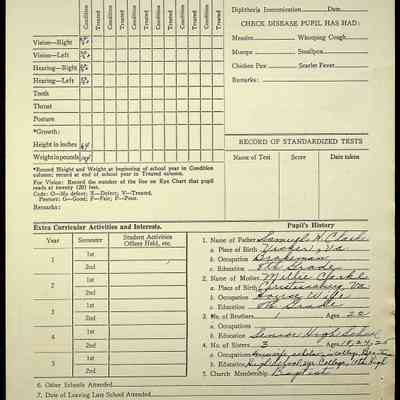 Diphtheria Immunization Date
CHECK DISEASE PUPIL HAS HAD:
Condition Treated Condition Treated Condition Treated Condition Treated Condition Treated Condition Treated
Measles Whooping Cough
Mumps Smallpox
Chicken Pox Scarlet Fever
Remarks:
Vision—Right
Vision—Left
Hearing—Right
Hearing—Left
Teeth
Throat
Posture
*Growth:
Height in inches 64
Weight in pounds 104
RECORD OF STANDARDIZED TESTS
Name of Test Score Date taken
*Record Height and Weight at beginning of school year in Condition column; record at end of school year in Treated column.
For Vision: Record the number of the line on Eye Chart that pupil reads at twenty (20) feet.
Code: O—No defect; X—Defect; V—Treated.
Posture: G—Good; F—Fair; P—Poor.
Remarks:
Extra Curricular Activities and Interests.
Year Semester Student Activities Officer Held, etc.
1 1st
2nd
2 1st
2nd
3 1st
2nd
4 1st
2nd
5 1st
2nd
6. Other Schools Attended
7. Date of Leaving Last School Attended
Pupil's History
1. Name of Father Samuel H. Clark
a. Place of Birth Va
b. Occupation Brakeman
c. Education 8th Grade
2. Name of Mother Millie Clark
a. Place of Birth Christiansburg, Va
b. Occupation House Wife
c. Education 8th Grade
3. No. of Brothers 1 Ages 22
a. Occupations
b. Education Senior High School
4. No. of Sisters 3 Ages 18, 24, 25
a. Occupations
b. Education High School, College, 11th High
5. Church Membership Baptist